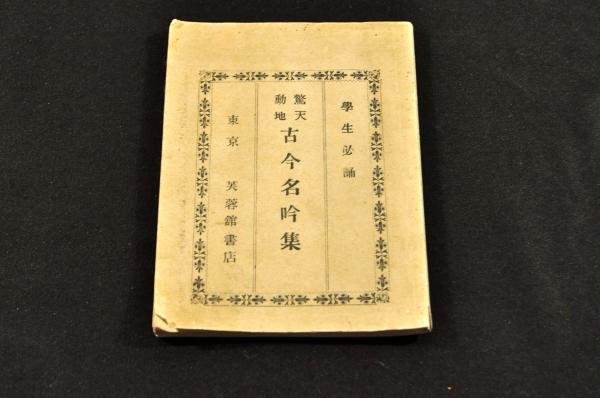 學生必誦
驚天動地
古今名吟集
東京 芙蓉館書店